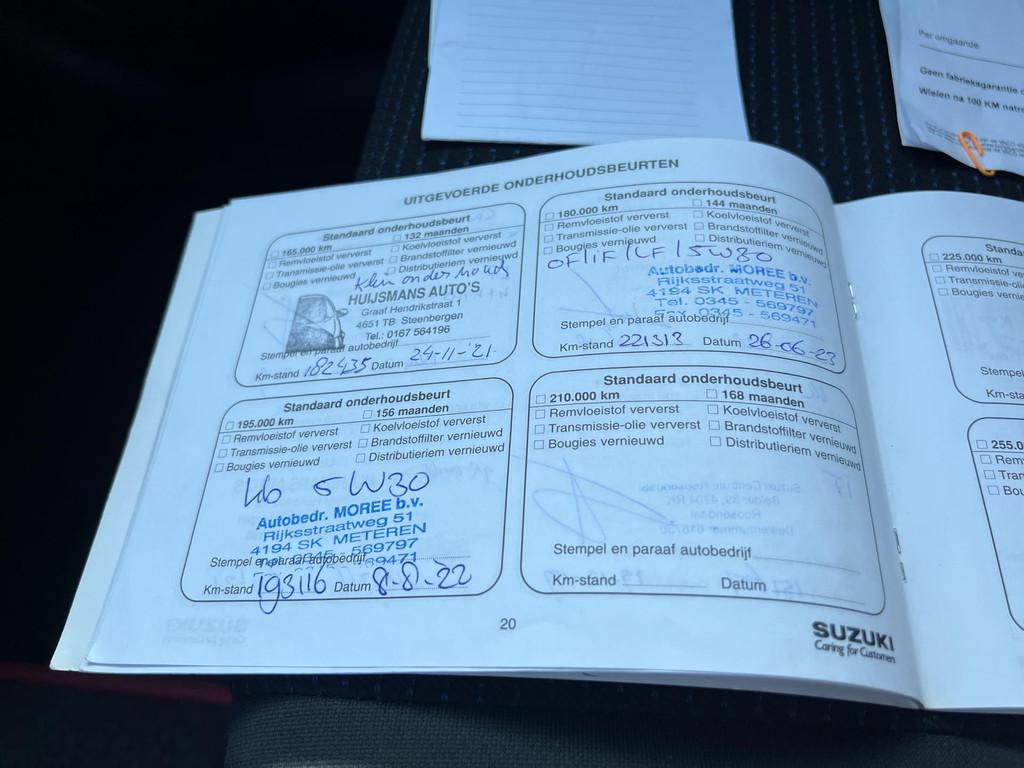 Per omgaande
Geen fabrieksgarantie
Wielen na 100 KM
UITGEVOERDE ONDERHOUDSBEURTEN
Standaard onderhoudsbeurt
165.000 km 132 maanden
Remvloeistof ververst Koelvloeistof ververst
Transmissie-olie ververst Brandstoffilter vernieuwd
Bougies vernieuwd Distributieriem vernieuwd
klein onderhoud
HUIJSMANS AUTO'S
Graaf Hendrikstraat 1
4651 TB Steenbergen
Tel.: 0167 564196
Stempel en paraaf autobedrijf
Km-stand 182435 Datum 24-11-'21
Standaard onderhoudsbeurt
180.000 km 144 maanden
Remvloeistof ververst Koelvloeistof ververst
Transmissie-olie ververst Brandstoffilter vernieuwd
Bougies vernieuwd Distributieriem vernieuwd
OF/iF/LF/5W30
Autobedr. MOREE b.v.
Rijksstraatweg 51
4194 SK METEREN
Tel. 0345 - 569797
Fax 0345 - 569471
Stempel en paraaf autobedrijf
Km-stand 221313 Datum 26-06-23
Standaard onderhoudsbeurt
195.000 km 156 maanden
Remvloeistof ververst Koelvloeistof ververst
Transmissie-olie ververst Brandstoffilter vernieuwd
Bougies vernieuwd Distributieriem vernieuwd
kb 5W30
Autobedr. MOREE b.v.
Rijksstraatweg 51
4194 SK METEREN
Tel. 0345 - 569797
Stempel en paraaf autobedrijf
Km-stand 193116 Datum 8-8-22
Standaard onderhoudsbeurt
210.000 km 168 maanden
Remvloeistof ververst Koelvloeistof ververst
Transmissie-olie ververst Brandstoffilter vernieuwd
Bougies vernieuwd Distributieriem vernieuwd
Stempel en paraaf autobedrijf
Km-stand Datum
20
SUZUKI
Caring for Customers
225.000 km
Remvloeistof
Transmissie-olie
Bougies
Stempel
255.0